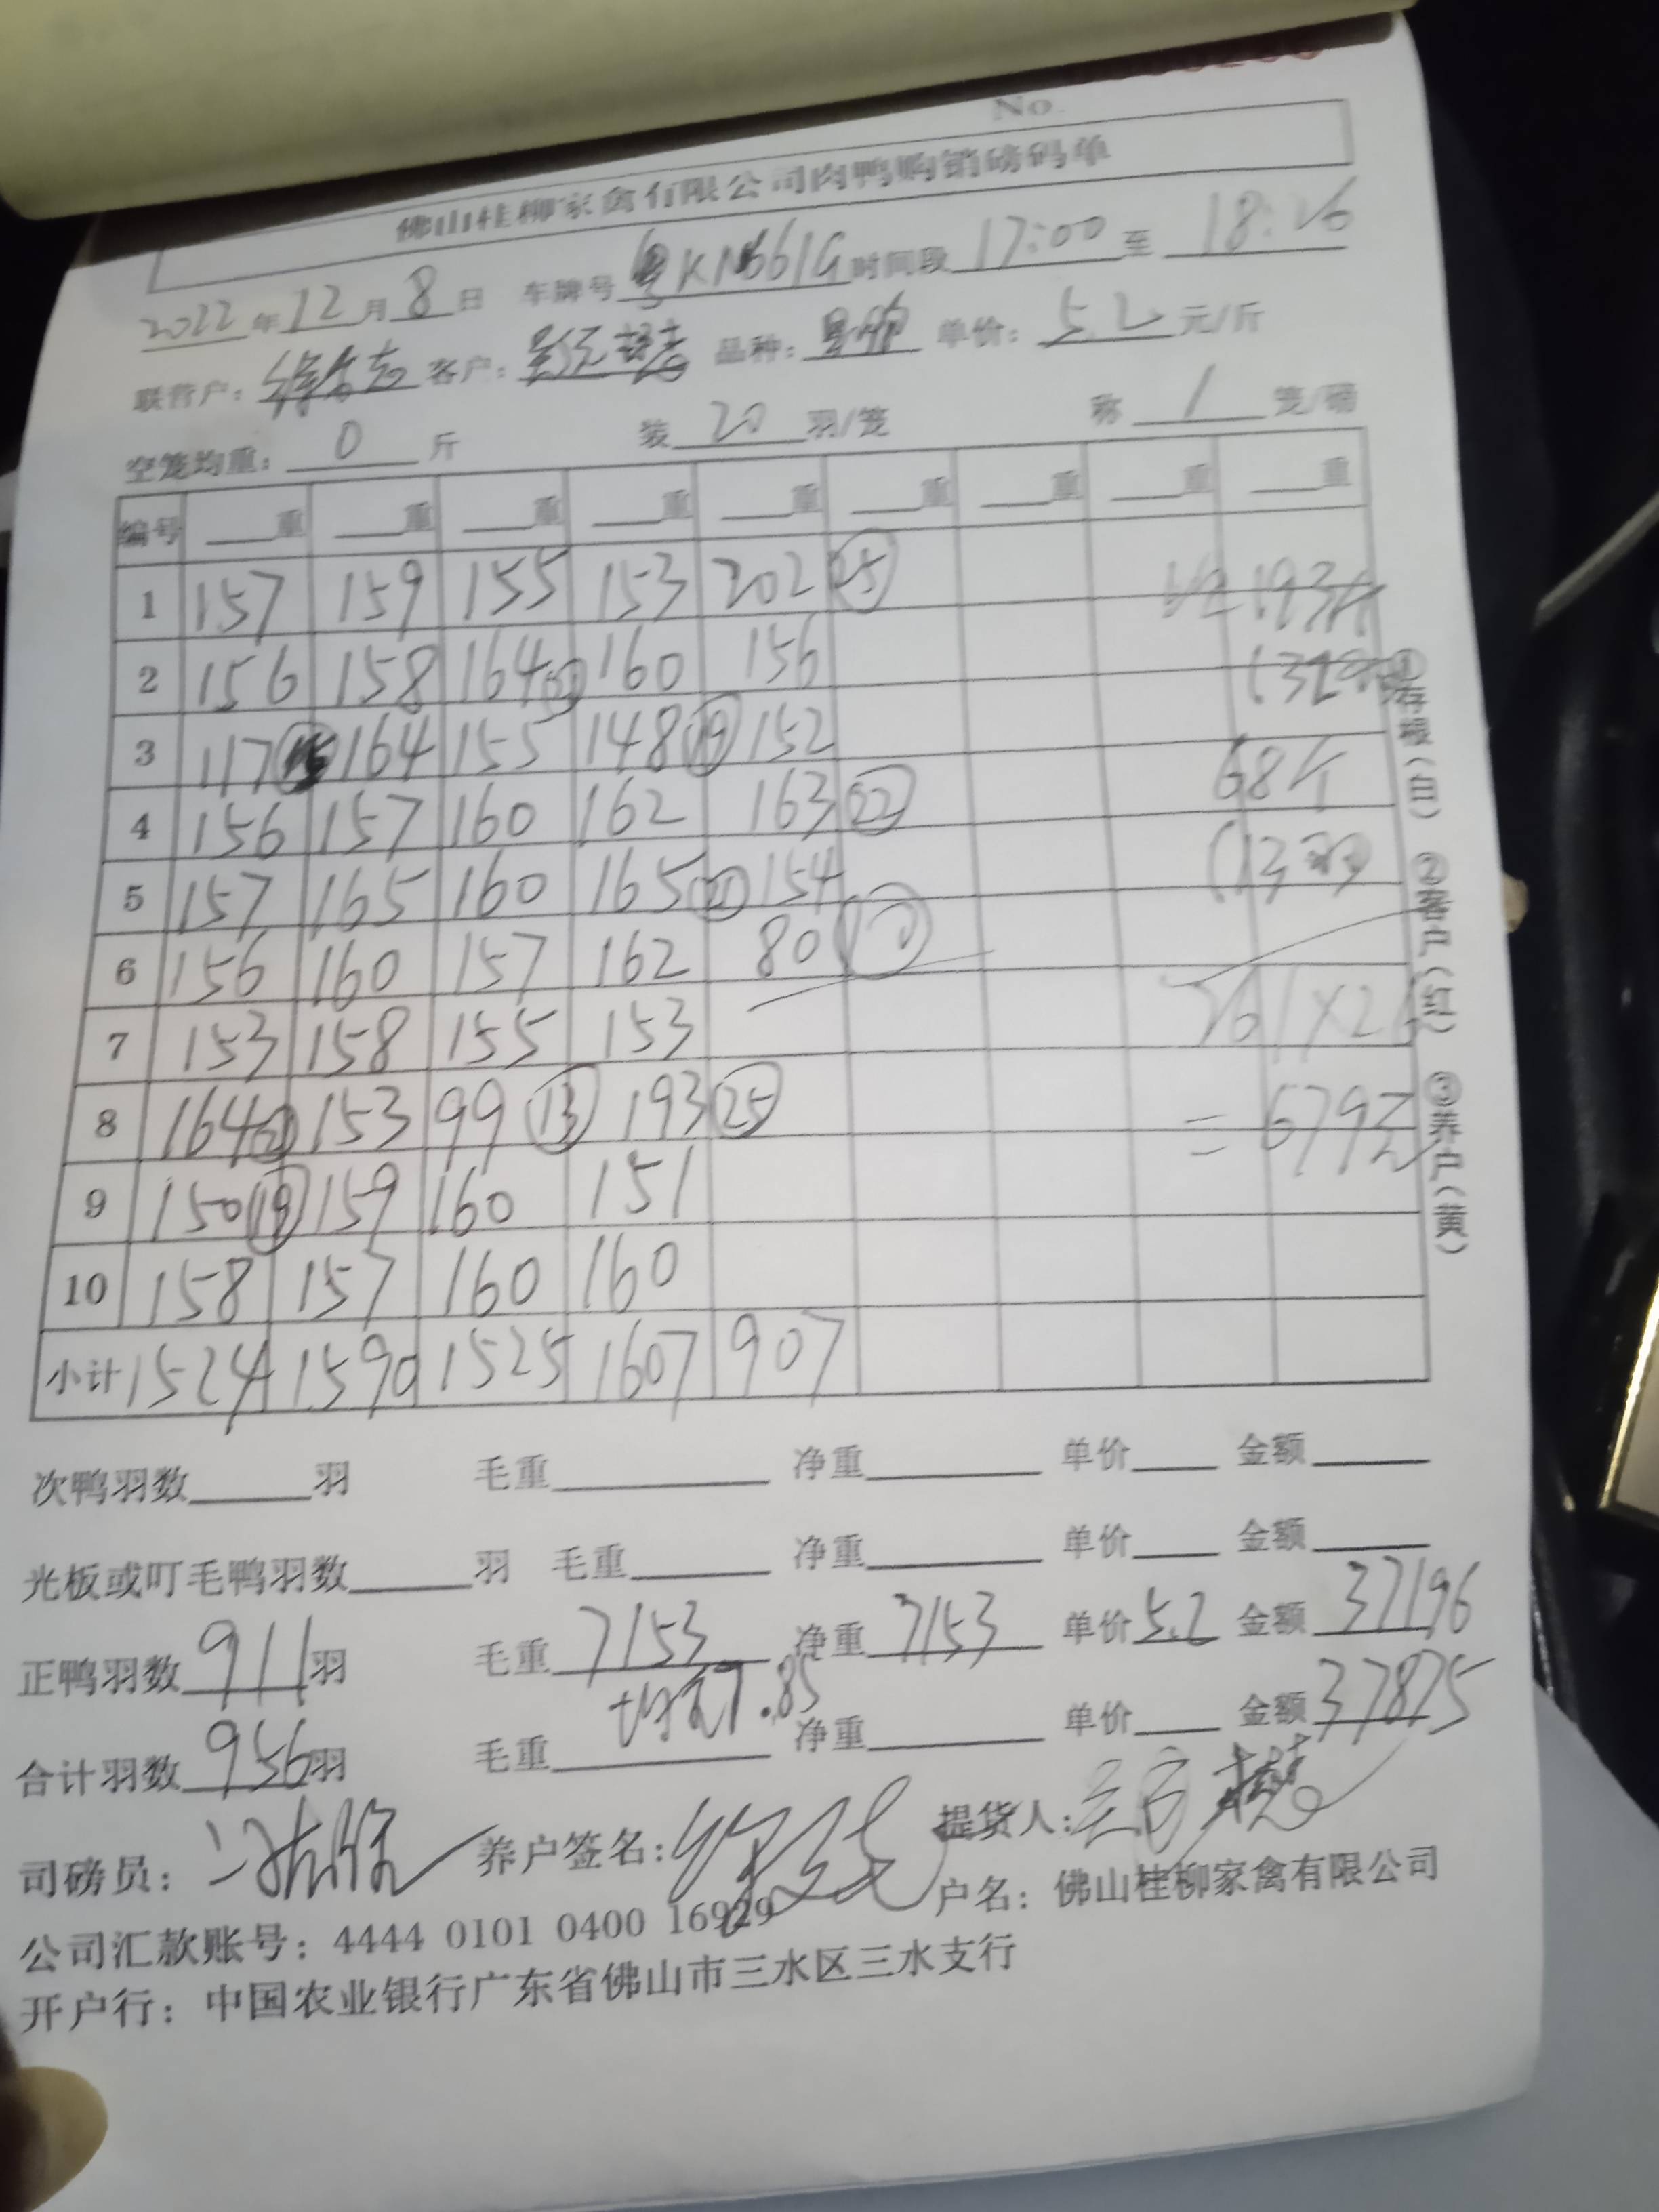 No.
佛山桂柳家禽有限公司肉鸭购销磅码单
2022年12月8日 车牌号 粤KN661G 时间段 17:00 至 18:26
联营户: 客户: 品种: 单价: 5.2 元/斤
空笼均重: 0 斤 装 20 羽/笼 称 1 笼/磅
编号 重 重 重 重 重 重 重 重 重
1 157 159 155 153 202 25
2 156 158 164 21 160 156
3 117 15 164 155 148 19 152
4 156 157 160 162 163 22
5 157 165 160 165 21 154
6 156 160 157 162 80
7 153 158 155 153
8 164 21 153 99 13 193 25
9 150 19 159 160 151
10 158 157 160 160
小计 1524 1590 1525 1607 907
68个
= 679元
①存根(白) ②客户(红) ③养户(黄)
次鸭羽数 羽 毛重 净重 单价 金额
光板或叮毛鸭羽数 羽 毛重 净重 单价 金额
正鸭羽数 911 羽 毛重 7153 净重 7153 单价 5.2 金额 37196
均重7.85
合计羽数 956 羽 毛重 净重 单价 金额 37875
司磅员: 养户签名: 提货人:
公司汇款账号: 4444 0101 0400 16929 户名: 佛山桂柳家禽有限公司
开户行: 中国农业银行广东省佛山市三水区三水支行